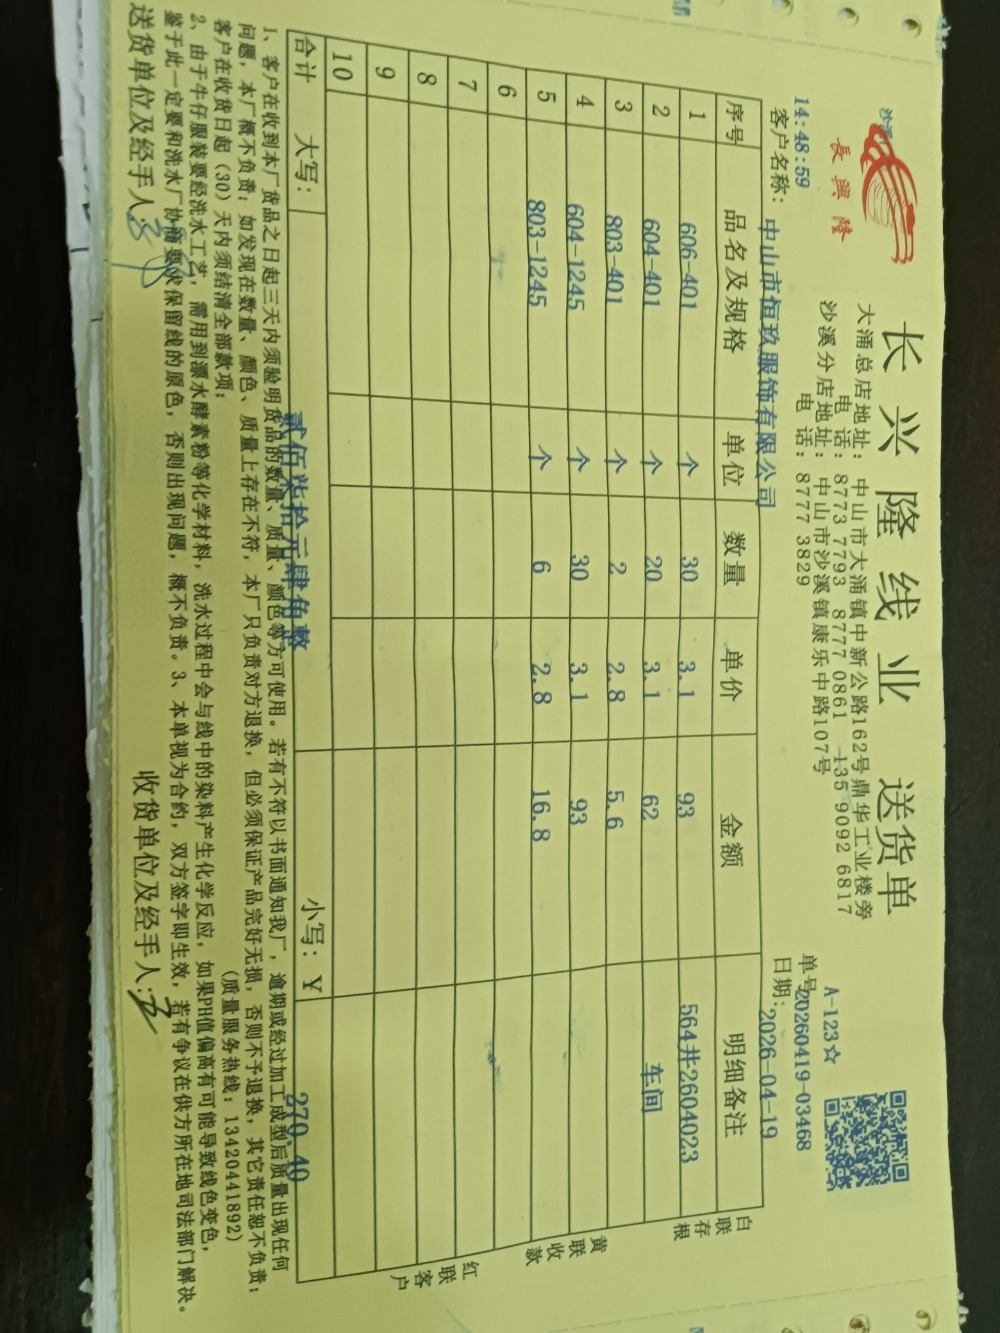 沙溪
長興隆
长兴隆线业 送货单
大涌总店地址：中山市大涌镇中新公路162号鼎华工业楼旁
电 话：8773 7793 8777 0861 135 9092 6817
沙溪分店地址：中山市沙溪镇康乐中路107号
电 话：8777 3829
A-123☆
单号：20260419-03468
日期：2026-04-19
14:48:59
客户名称：中山市恒玖服饰有限公司
序号 品名及规格 单位 数量 单价 金额 明细备注
1 606-401 个 30 3.1 93 564井2604023
2 604-401 个 20 3.1 62 车间
3 803-401 个 2 2.8 5.6
4 604-1245 个 30 3.1 93
5 803-1245 个 6 2.8 16.8
6
7
8
9
10
合计 大写：贰佰柒拾元肆角整 小写：￥ 270.40
白联存根
黄联收款
红联客户
1、客户在收到本厂货品之日起三天内须验明货品的数量、质量、颜色等方可使用。若有不符以书面通知我厂，逾期或经过加工成型后质量出现任何
问题，本厂概不负责；如发现在数量、颜色、质量上存在不符，本厂只负责对方退换，但必须保证产品完好无损，否则不予退换，其它责任恕不负责；
客户在收货日起（30）天内须结清全部款项； （质量服务热线：13420441892）
2、由于牛仔服装要经洗水工艺，需用到漂水酵素粉等化学材料，洗水过程中会与线中的染料产生化学反应，如果PH值偏高有可能导致线色变色，
鉴于此一定要和洗水厂协商要求保留线的原色，否则出现问题，概不负责。3、本单视为合约，双方签字即生效，若有争议在供方所在地司法部门解决。
送货单位及经手人： 收货单位及经手人：